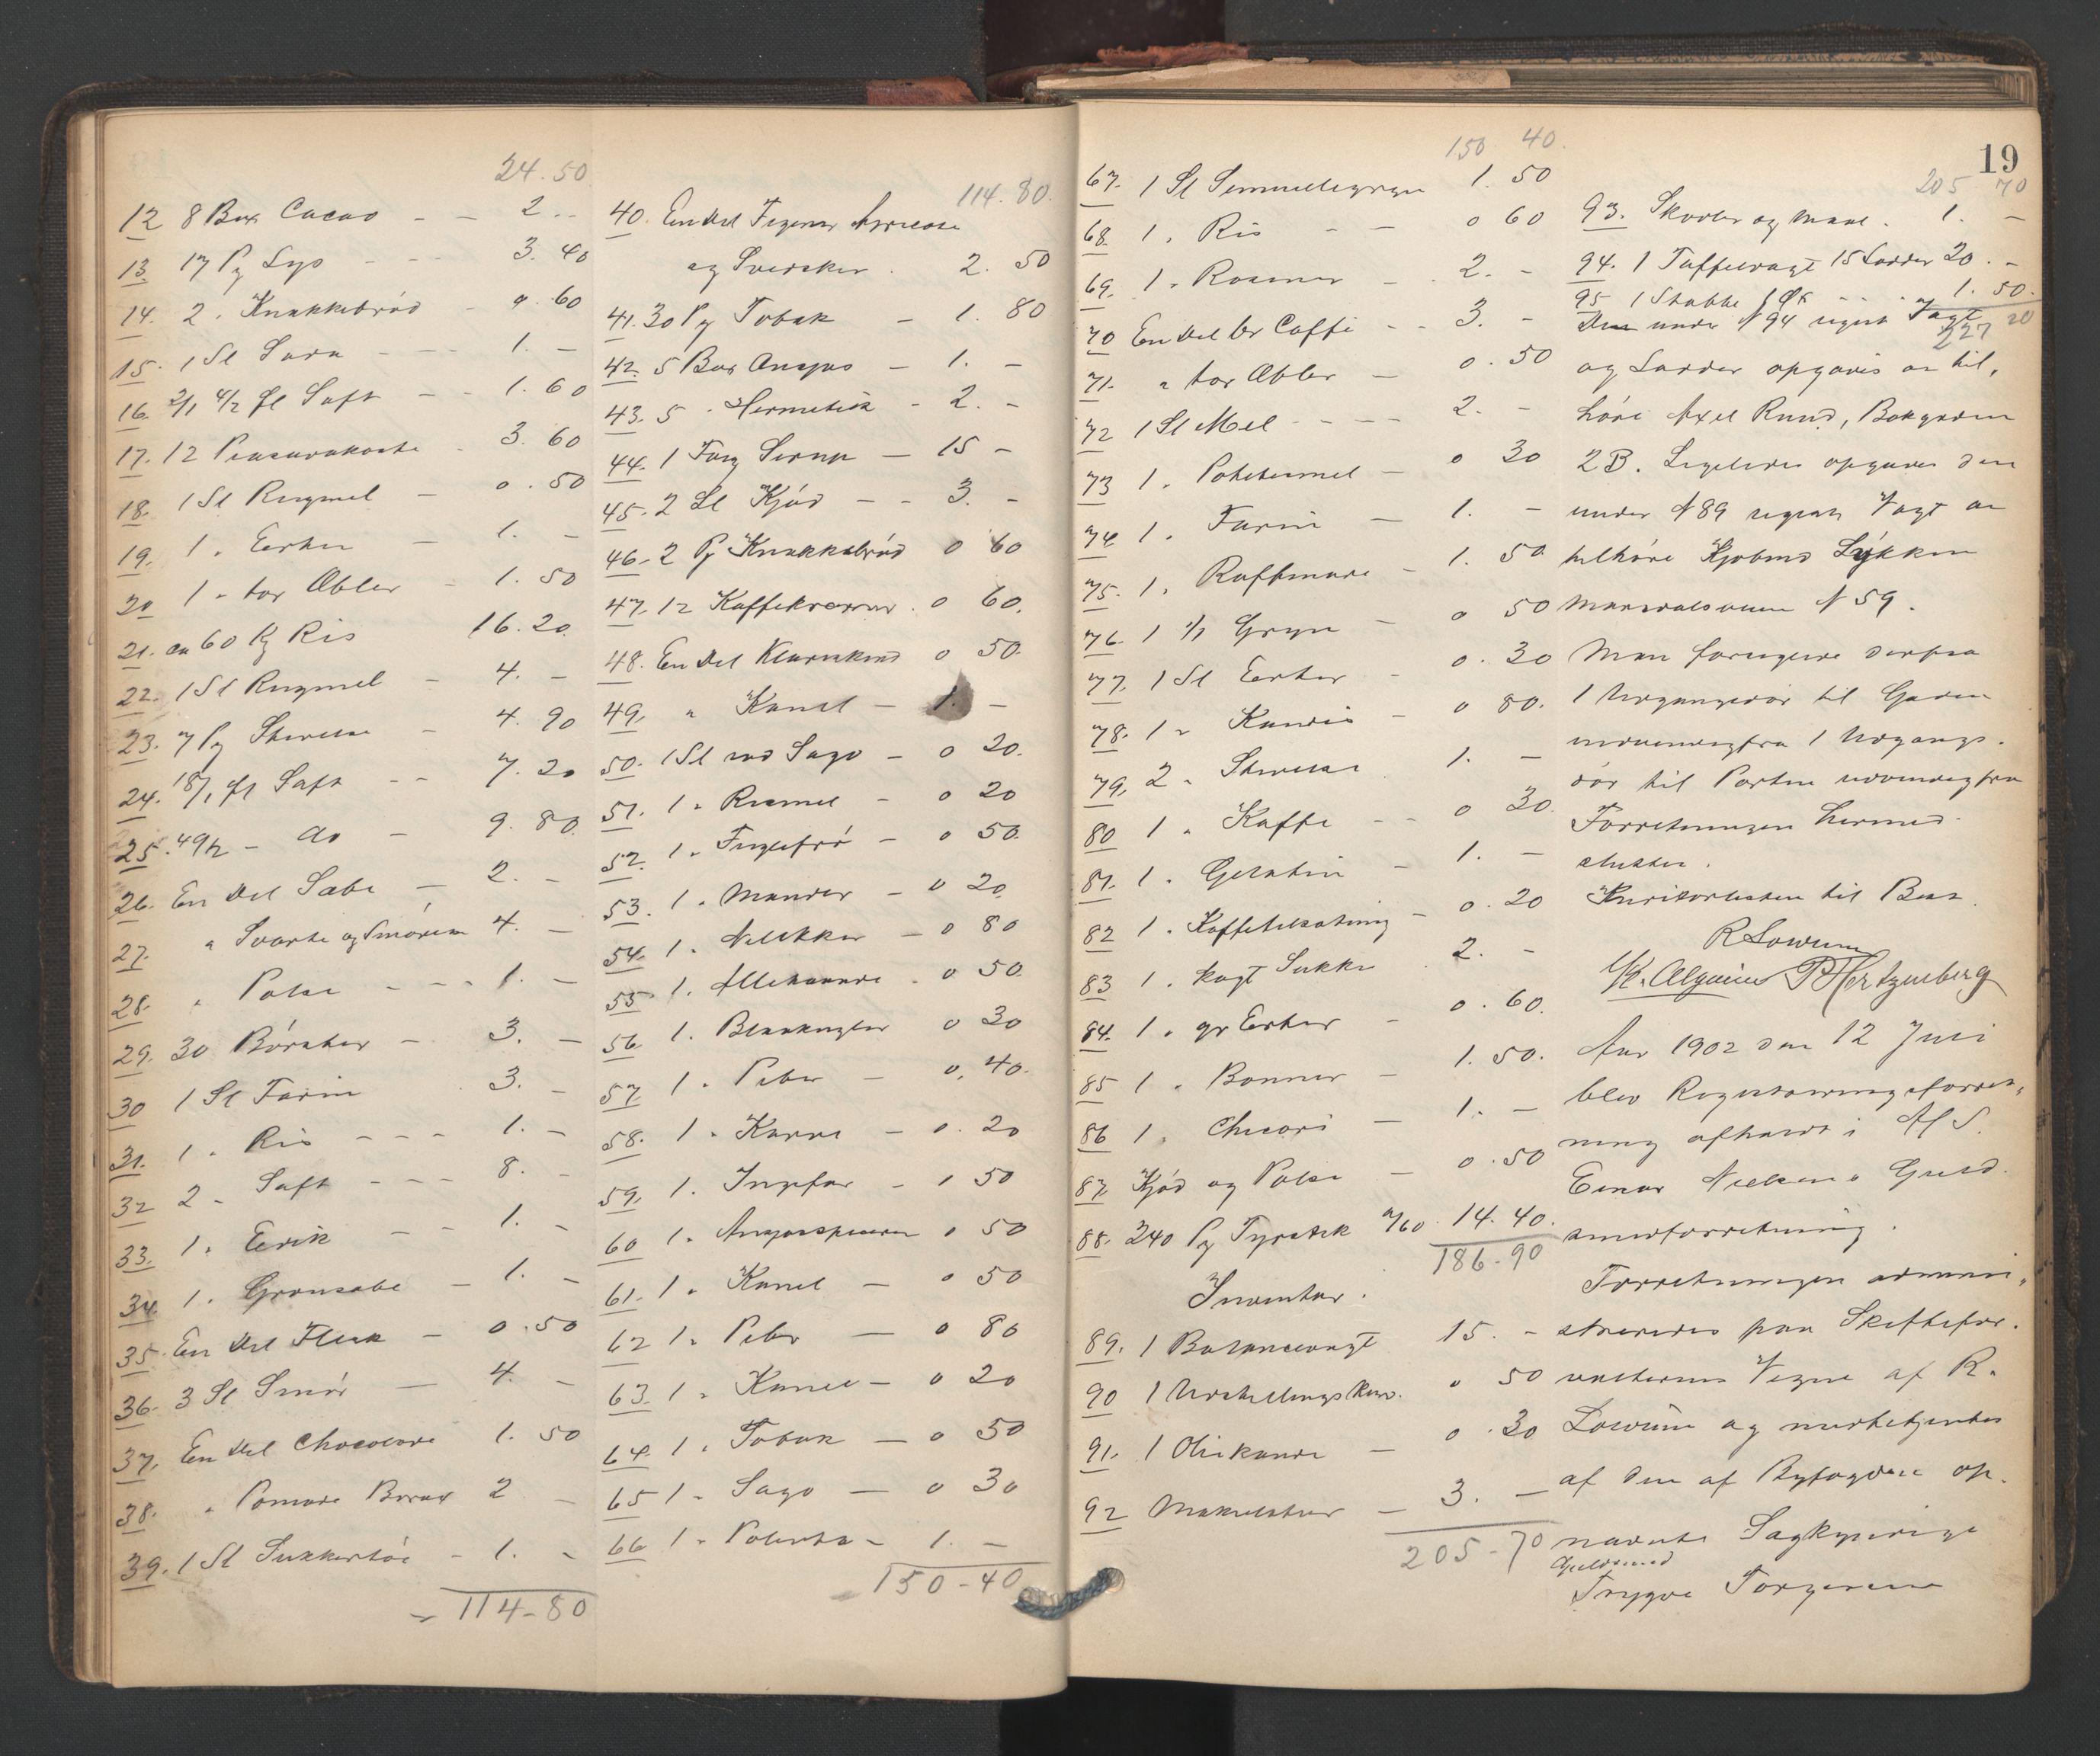 24.50
12 8 Box Cacao - - 2 - -
13. 17 Pg Lys - - - 3. 40
14. 2 " Knækkebrød - 0. 60
15. 1 Sl Soda - - - 1. -
16. 2/1 4/2 fl Saft - - 1. 60
17. 12 Piasavakoste - 3. 60
18. 1 Sl Rugmel - 0. 50
19. 1 " Erter - 1. -
20 1 " tør Æbler - 1. 50
21. ca 60 Kg Ris 16. 20
22. 1 Sl Rugmel - 4. -
23. 7 Pg Stivelse - 4. 90
24. 18/1 fl Saft - - 7. 20
25. 49/2 - do - 9. 80
26. En Del Sæbe - 2. -
27. " Sværte og Smørelse 4. -
28. " Pølse - - - 1. -
29. 30 Børster - 3. -
30 1 Sl Farin 3. -
31. 1 " Ris - - - 1. -
32 2 - Saft - - - 8. -
33. 1 " Edik - - 1. -
34. 1 " Grønsæbe - 1. -
35. En Del Flesk - 0. 50
36. 3 Sl Smør - 4. -
37. En Del Chocolade 1. 50
38. " Pomade Borax 2 -
39. 1 Sl Sukkertøi - 1. -
114-80
114.80.
40. En Del Figener Apricose
og Svedsker . 2. 50
41. 30 Pg Tobak - 1. 80
42. 5 Box Ansjos - 1. -
43. 5 " Hermetisk - 2. -
44. 1 Fag Sirup - 15 -
45. 2 Sl Kjød - - 3. -
46. 2 Pg Knækkebrød 0 60
47. 12 Kaffekværner 0 60.
48. En Del 0 50.
49. " Kanel - 1. -
50. 1 Sl rød Sago - 0 20.
51. 1 " Rismel - 0 20
52. 1 " Fuglefrø - 0 50.
53. 1 " Mandler - 0 20
54. 1 " Nellikker - 0 80
55 1 " Allehaande . 0 50.
56 1 " Blaakugler 0 30
57. 1 " Peber - 0. 40.
58. 1 " Karve - 0. 20
59. 1 " Ingefær - 0 50
60 1 " 0 50
61. 1 " Kanel - 0 50
62 1 " Peber - 0 80
63. 1 " Kanel - 0 20
64. 1 " Tobak - 0 50
65 1 " Sago - 0 30
66 1 " - 1. -
150-40
150 40.
67. 1 Sl Semmellegryn 1. 50
68. 1 " Ris - - 0 60
69. 1 " Rosiner - 2. -
70 En Del br Caffe - - 3. -
71. " tør Æbler - 0. 50
72 1 Sl Mel - - - - 2. -
73 1 " Potetesmel - 0 30
74. 1 " Farin - 1. -
75. 1 " Raffinade - 1. 50
76. 1 1/1 Gryn - 0 50
77. 1 Sl Erter - 0. 30
78. 1 " Kandis - 0 80.
79. 2 " Stivelse 1. -
80 1 " Kaffe - - 0 30.
81. 1 " Gelatin - 1. -
82 1 " Kaffetilsætning - 0. 20
83 1 " hugt Sukker . 2. -
84. 1 " gr Erter - 0. 60.
85 1 " Bønner - 1. 50.
86 1 " Chicori - 1. -
87. Kjød og Pølse - 0. 50
88. 240 Pg Fyrstik 14. 40.
186-90
Inventar.
89. 1 Balancevægt 15. -
90 1 Udstillingskas. 0 50
91. 1 Oliekande - 0. 30
92 Makulatur - 3. -
205-70
19
205 70
93. Skovler og Maal. 1. -
94. 1 Taffelvægt 15 Lodder 20. -
95 1 Stabbe 1 Øx - - - 1. 50.
Den under N 94 regist Vægt
227 20
og Lodder opgaves at til,
høre Axel Ruud, Bakgaden
2B. Ligeledes opgaves den
under N 89 regist Vægt at
tilhøre Kjøbmd Lykken
Maridalsveien N 59.
Man forseglede derpaa
1 Udgangsdør til Gaden
indvendigfra 1 Udgangs-
dør til Porten udvendigfra
Forretningen hermed
sluttet.
til Best.
R Lowum
P Hertzenberg
Aar 1902 den 12 Juli
blev Registreringsforret,
ning afholdt i Af S.
Einar Nielsens Guld-
smedforretning.
Forretningen admini,
streredes paa Skiftefor-
valterens Vegne af R.
Lowum og
af den af Byfogden op-
nævnte Sagkyndige
Guldsmed
Trygve Torgersen